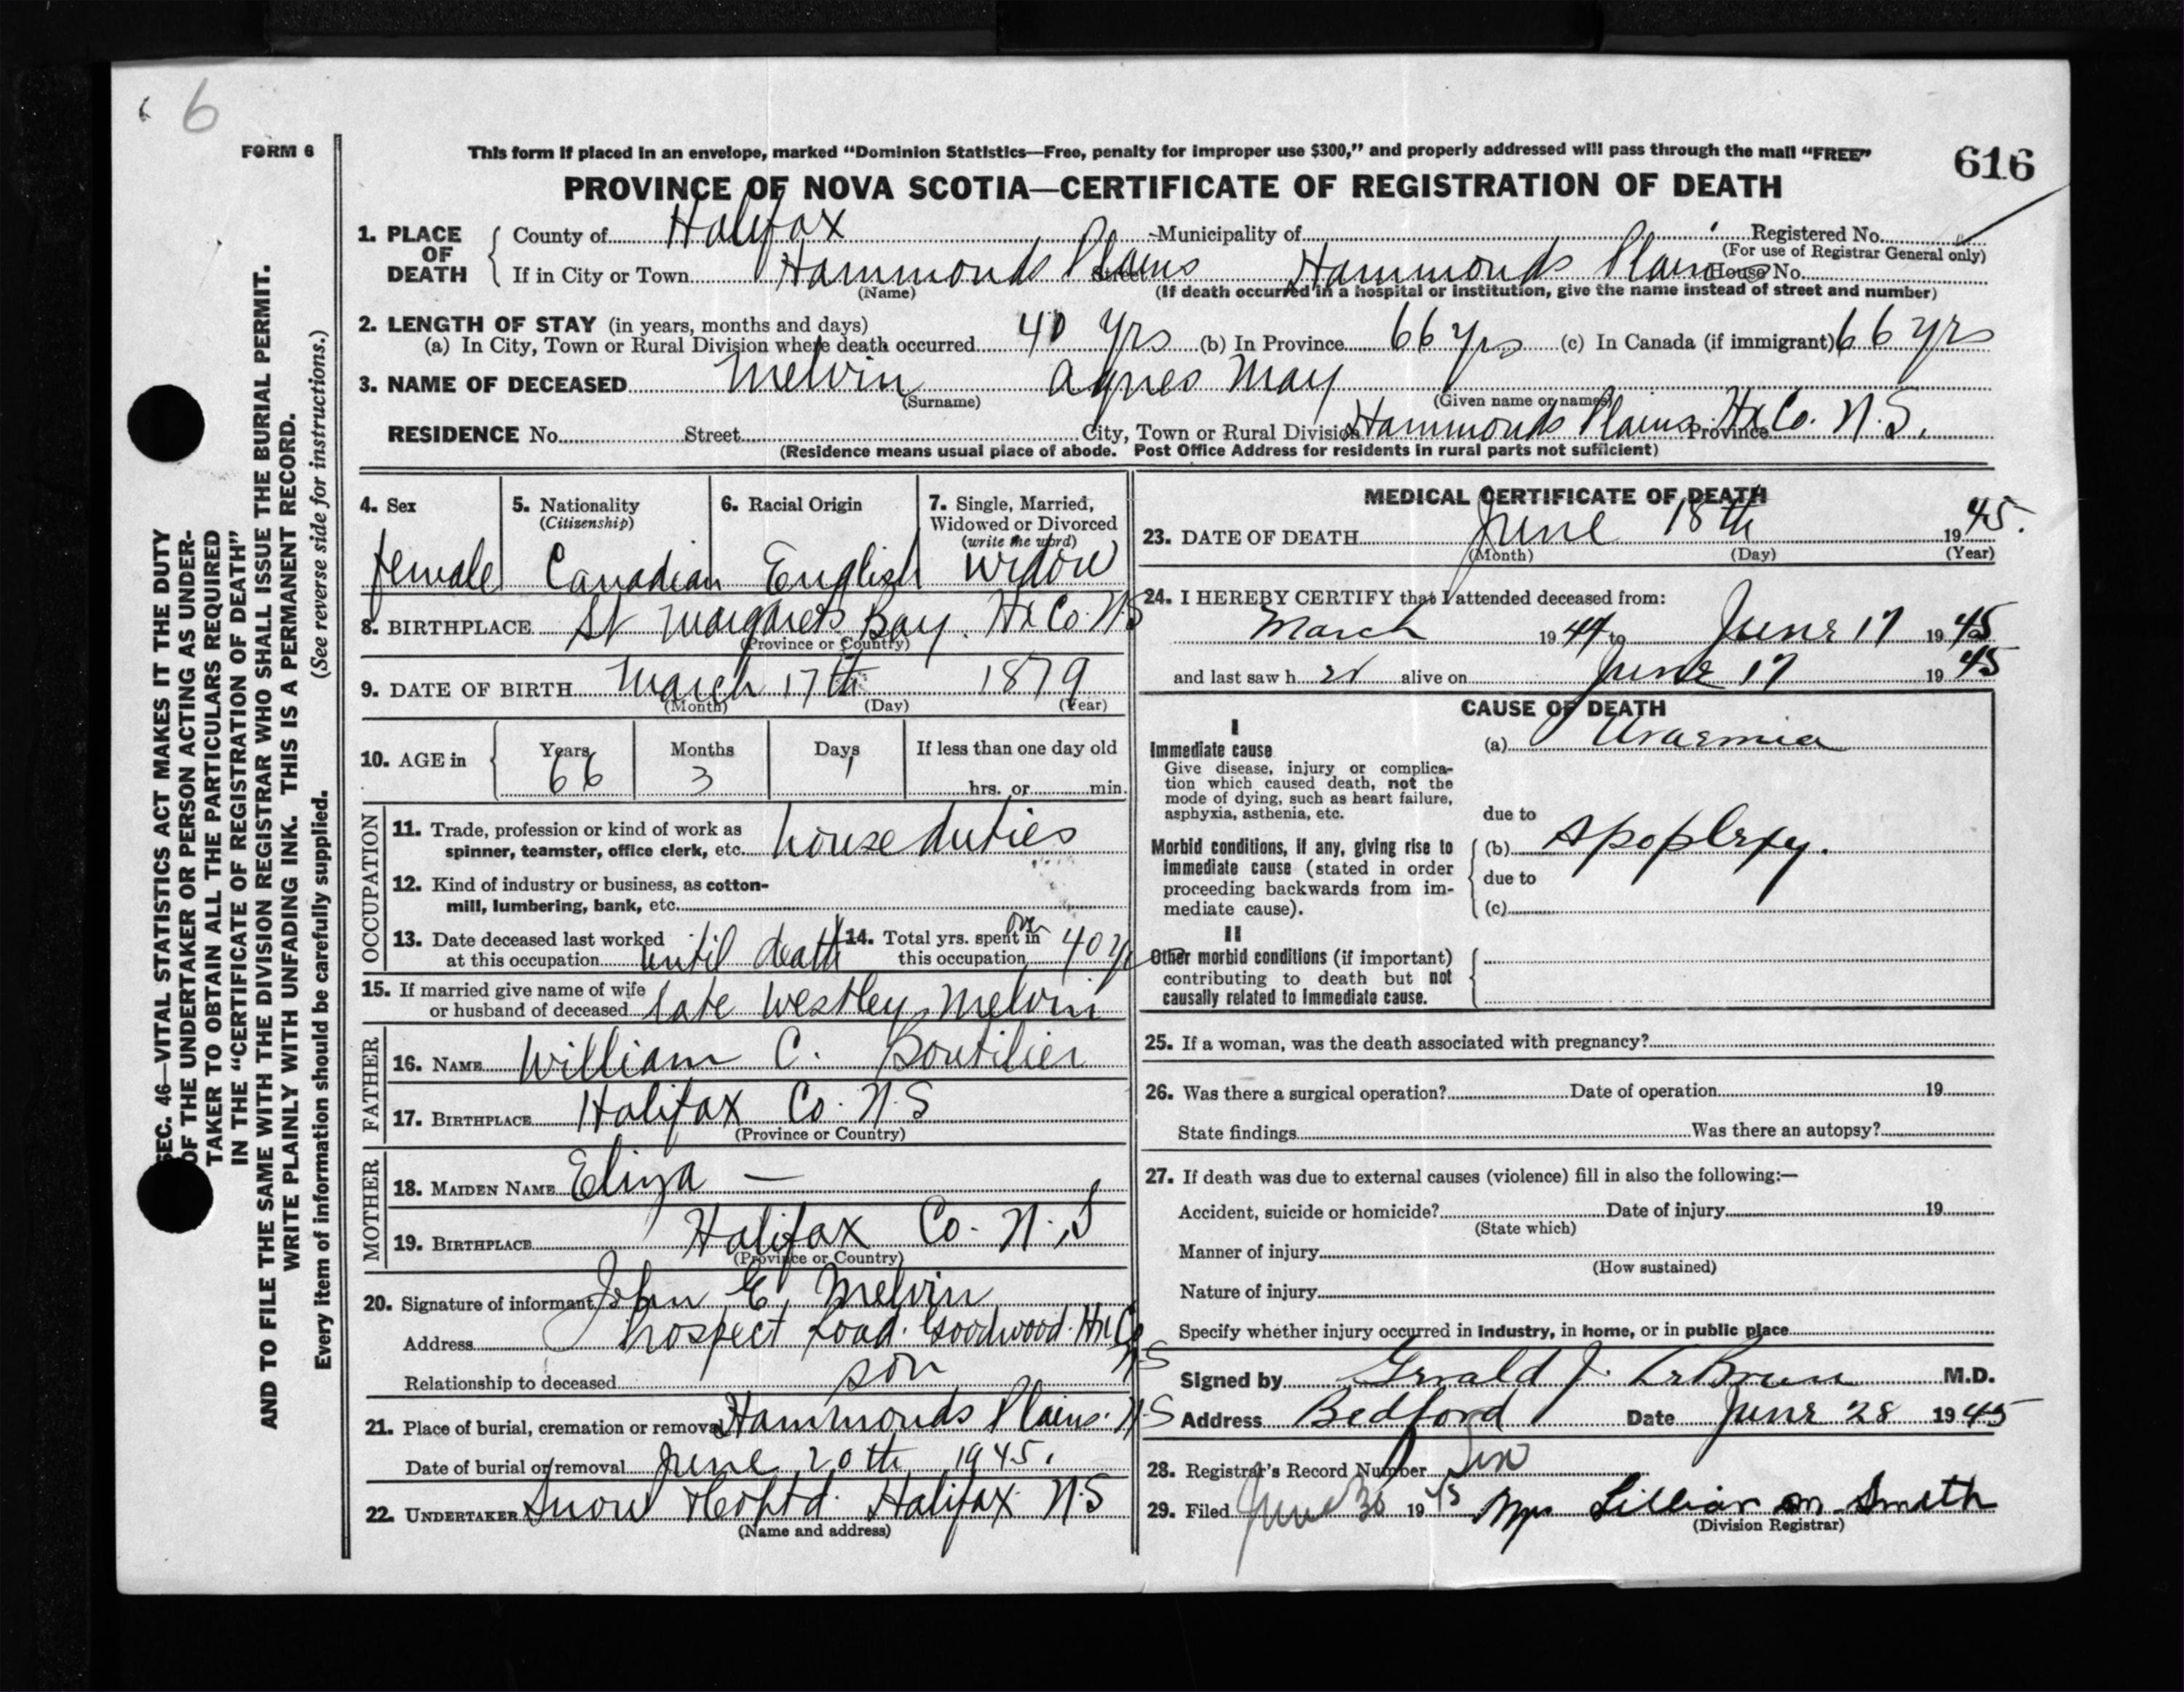 6
FORM 6
616
This form if placed in an envelope, marked "Dominion Statistics—Free, penalty for improper use $300," and properly addressed will pass through the mail "FREE"
PROVINCE OF NOVA SCOTIA—CERTIFICATE OF REGISTRATION OF DEATH
1. PLACE OF DEATH
County of Halifax Municipality of Registered No.
(For use of Registrar General only)
If in City or Town Hammonds Plains Street Hammonds Plains House No.
(Name) (If death occurred in a hospital or institution, give the name instead of street and number)
2. LENGTH OF STAY (in years, months and days)
(a) In City, Town or Rural Division where death occurred 40 yrs (b) In Province 66 yrs (c) In Canada (if immigrant) 66 yrs
3. NAME OF DECEASED Melvin Agnes May
(Surname) (Given name or names)
RESIDENCE No. Street City, Town or Rural Division Hammonds Plains Hx Co. Province N.S.
(Residence means usual place of abode. Post Office Address for residents in rural parts not sufficient)
4. Sex
female
5. Nationality
(Citizenship)
Canadian
6. Racial Origin
English
7. Single, Married,
Widowed or Divorced
(write the word)
widow
8. BIRTHPLACE St Margarets Bay. Hx Co. N.S
(Province or Country)
9. DATE OF BIRTH March 17th 1879
(Month) (Day) (Year)
10. AGE in Years Months Days If less than one day old
66 3 1 hrs. or min.
OCCUPATION
11. Trade, profession or kind of work as
spinner, teamster, office clerk, etc. house duties
12. Kind of industry or business, as cotton-
mill, lumbering, bank, etc.
13. Date deceased last worked
at this occupation until death
14. Total yrs. spent in
this occupation over 40 y
15. If married give name of wife
or husband of deceased late Westley Melvin
FATHER
16. NAME William C. Boutilier
17. BIRTHPLACE Halifax Co. N.S
(Province or Country)
MOTHER
18. MAIDEN NAME Eliza —
19. BIRTHPLACE Halifax Co. N.S
(Province or Country)
20. Signature of informant John E. Melvin
Address Prospect Road. Goodwood. Hx Co
N.S
Relationship to deceased son
21. Place of burial, cremation or removal Hammonds Plains. N.S
Date of burial or removal June 20th 1945.
22. UNDERTAKER Snow & Co Ltd. Halifax N.S
(Name and address)
MEDICAL CERTIFICATE OF DEATH
23. DATE OF DEATH June 18th 1945.
(Month) (Day) (Year)
24. I HEREBY CERTIFY that I attended deceased from:
March 1944 to June 17 1945
and last saw h er alive on June 17 1945
CAUSE OF DEATH
I
Immediate cause
Give disease, injury or complica-
tion which caused death, not the
mode of dying, such as heart failure,
asphyxia, asthenia, etc.
(a) Uraemia
due to
Morbid conditions, if any, giving rise to
immediate cause (stated in order
proceeding backwards from im-
mediate cause).
(b) Apoplexy.
due to
(c)
II
Other morbid conditions (if important)
contributing to death but not
causally related to immediate cause.
25. If a woman, was the death associated with pregnancy?
26. Was there a surgical operation? Date of operation 19
State findings Was there an autopsy?
27. If death was due to external causes (violence) fill in also the following:—
Accident, suicide or homicide? Date of injury 19
(State which)
Manner of injury
(How sustained)
Nature of injury
Specify whether injury occurred in industry, in home, or in public place
Signed by Gerald J. LeBrun M.D.
Address Bedford Date June 28 1945
28. Registrar's Record Number Six
29. Filed June 30 1945 Mrs Lillian M. Smith
(Division Registrar)
SEC. 46—VITAL STATISTICS ACT MAKES IT THE DUTY
OF THE UNDERTAKER OR PERSON ACTING AS UNDER-
TAKER TO OBTAIN ALL THE PARTICULARS REQUIRED
IN THE "CERTIFICATE OF REGISTRATION OF DEATH"
AND TO FILE THE SAME WITH THE DIVISION REGISTRAR WHO SHALL ISSUE THE BURIAL PERMIT.
WRITE PLAINLY WITH UNFADING INK. THIS IS A PERMANENT RECORD.
Every item of information should be carefully supplied. (See reverse side for instructions.)